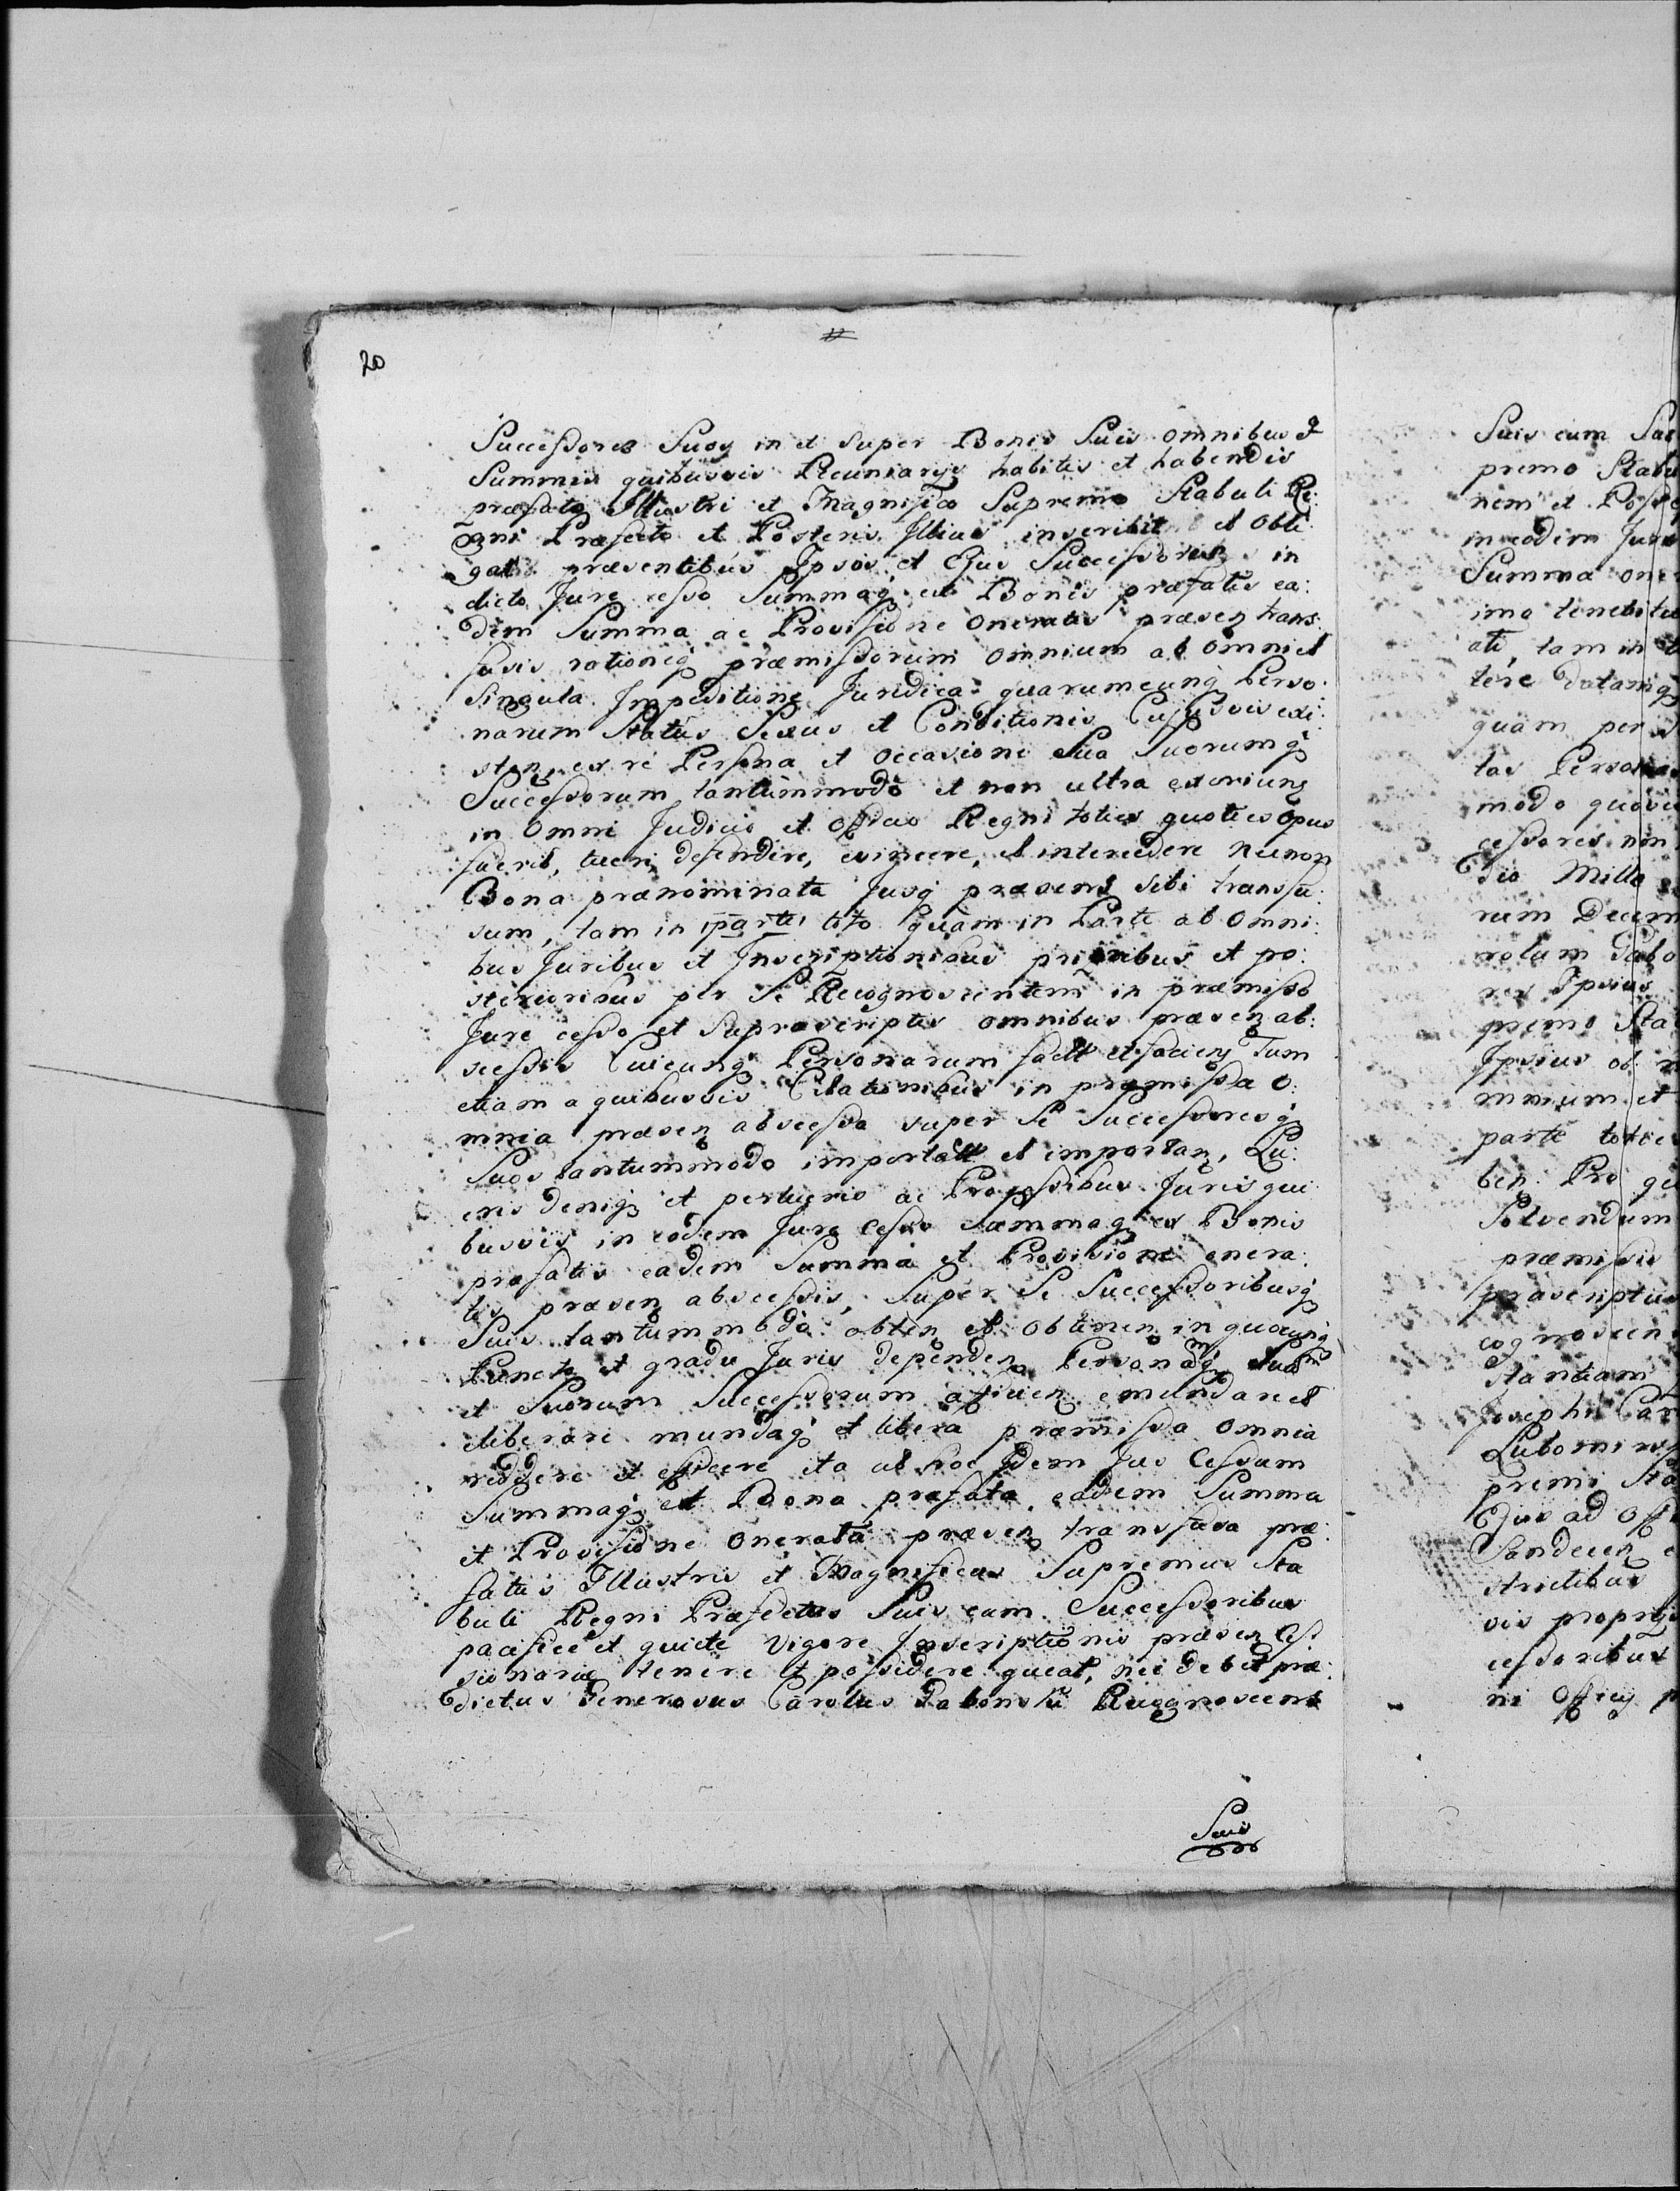 20
Successores Suos in et super Bonis Suis omnibus et
Summis quibusvis Pecuniarys habitis et habendis
præfato Illustri et Magnifico Supremo Stabuli Re:
gni Præfecto et Posteris Illius inscribit et obli:
gat præsentibus Ipsos et Ejus Successores in
dicto Jure cesso Summaq ex Bonis præfatis ea:
dem Summa ac Provisione oneratis præsen trans:
fusis rationeq præmissorum omnium ab omni et
Singula Impeditione Juridica quarumcunq Perso:
narum Status Sexus et Conditionis Cujusvis exi:
sten, ex re Persona et occasione Sua Suorumq
Successorum tantummodo et non ultra exoriens
in omni Judicio et Officio Regni toties quoties opus
fuerit, tueri, defendere, evincere, et intercedere necnon
Bona prænominata Jusq præsens sibi transfu:
sum, tam in parte toto quam in Parte ab omni:
bus Juribus et Inscriptionibus prioribus et po:
sterioribus per Se Recognoscentem in præmisso
Jure cesso et Suprascriptis omnibus præsen ab:
scessis Cuicunq Personarum fact et facien Tum
etiam a quibusvis Citationibus in præmissa o:
mnia præsen abscessa super Se Successoresq
Suos tantummodo importat et importan, Lu:
cris deniq et perlucris ac Processibus Juris qui:
busvis in eodem Jure cesso Summaq ex Bonis
præfatis eadem Summa et Provisione onera:
tis præsen abscessis, super Se Successoribusq
Suis tantummodo obten et obtinen in quocunq
Puncto et gradu Juris dependen Personamq Suam
et Suorum Successorum afficien emundare et
eliberare mundaq et libera præmissa omnia
reddere et efficere ita ut hoc Idem Jus Cessum
Summaq et Bona præfata eadem Summa
et Provisione onerata præsen transfusa præ:
fatus Illustris et Magnificus Supremus Sta
buli Regni Præfectus Suis cum Successoribus
pacifice et quiete vigore Inscriptionis præsen Ces:
sionariæ tenere et possidere queat, nec debet præ:
dictus Generosus Carolus Gabonski Recognoscens
Suis
Suis cum
premo
nem et
in eodem Jure
Summa
imo tenebitur
ati, tam in
tere datamq
quam per
tas Personas
modo quovis
cessores non
dio Mille
rum Decem
rolum Gabo
res Ipsius
premo Sta
Ipsius ob
mnium et
parte toties
ben Pro
Solvendum
præmissis
præscriptus
cognoscen
stantiam
Josephi
Lubomirs
premi Sta
Ejus ad Off
Sandecen
strictibus
vis proprys
cessoribus
ni Officy